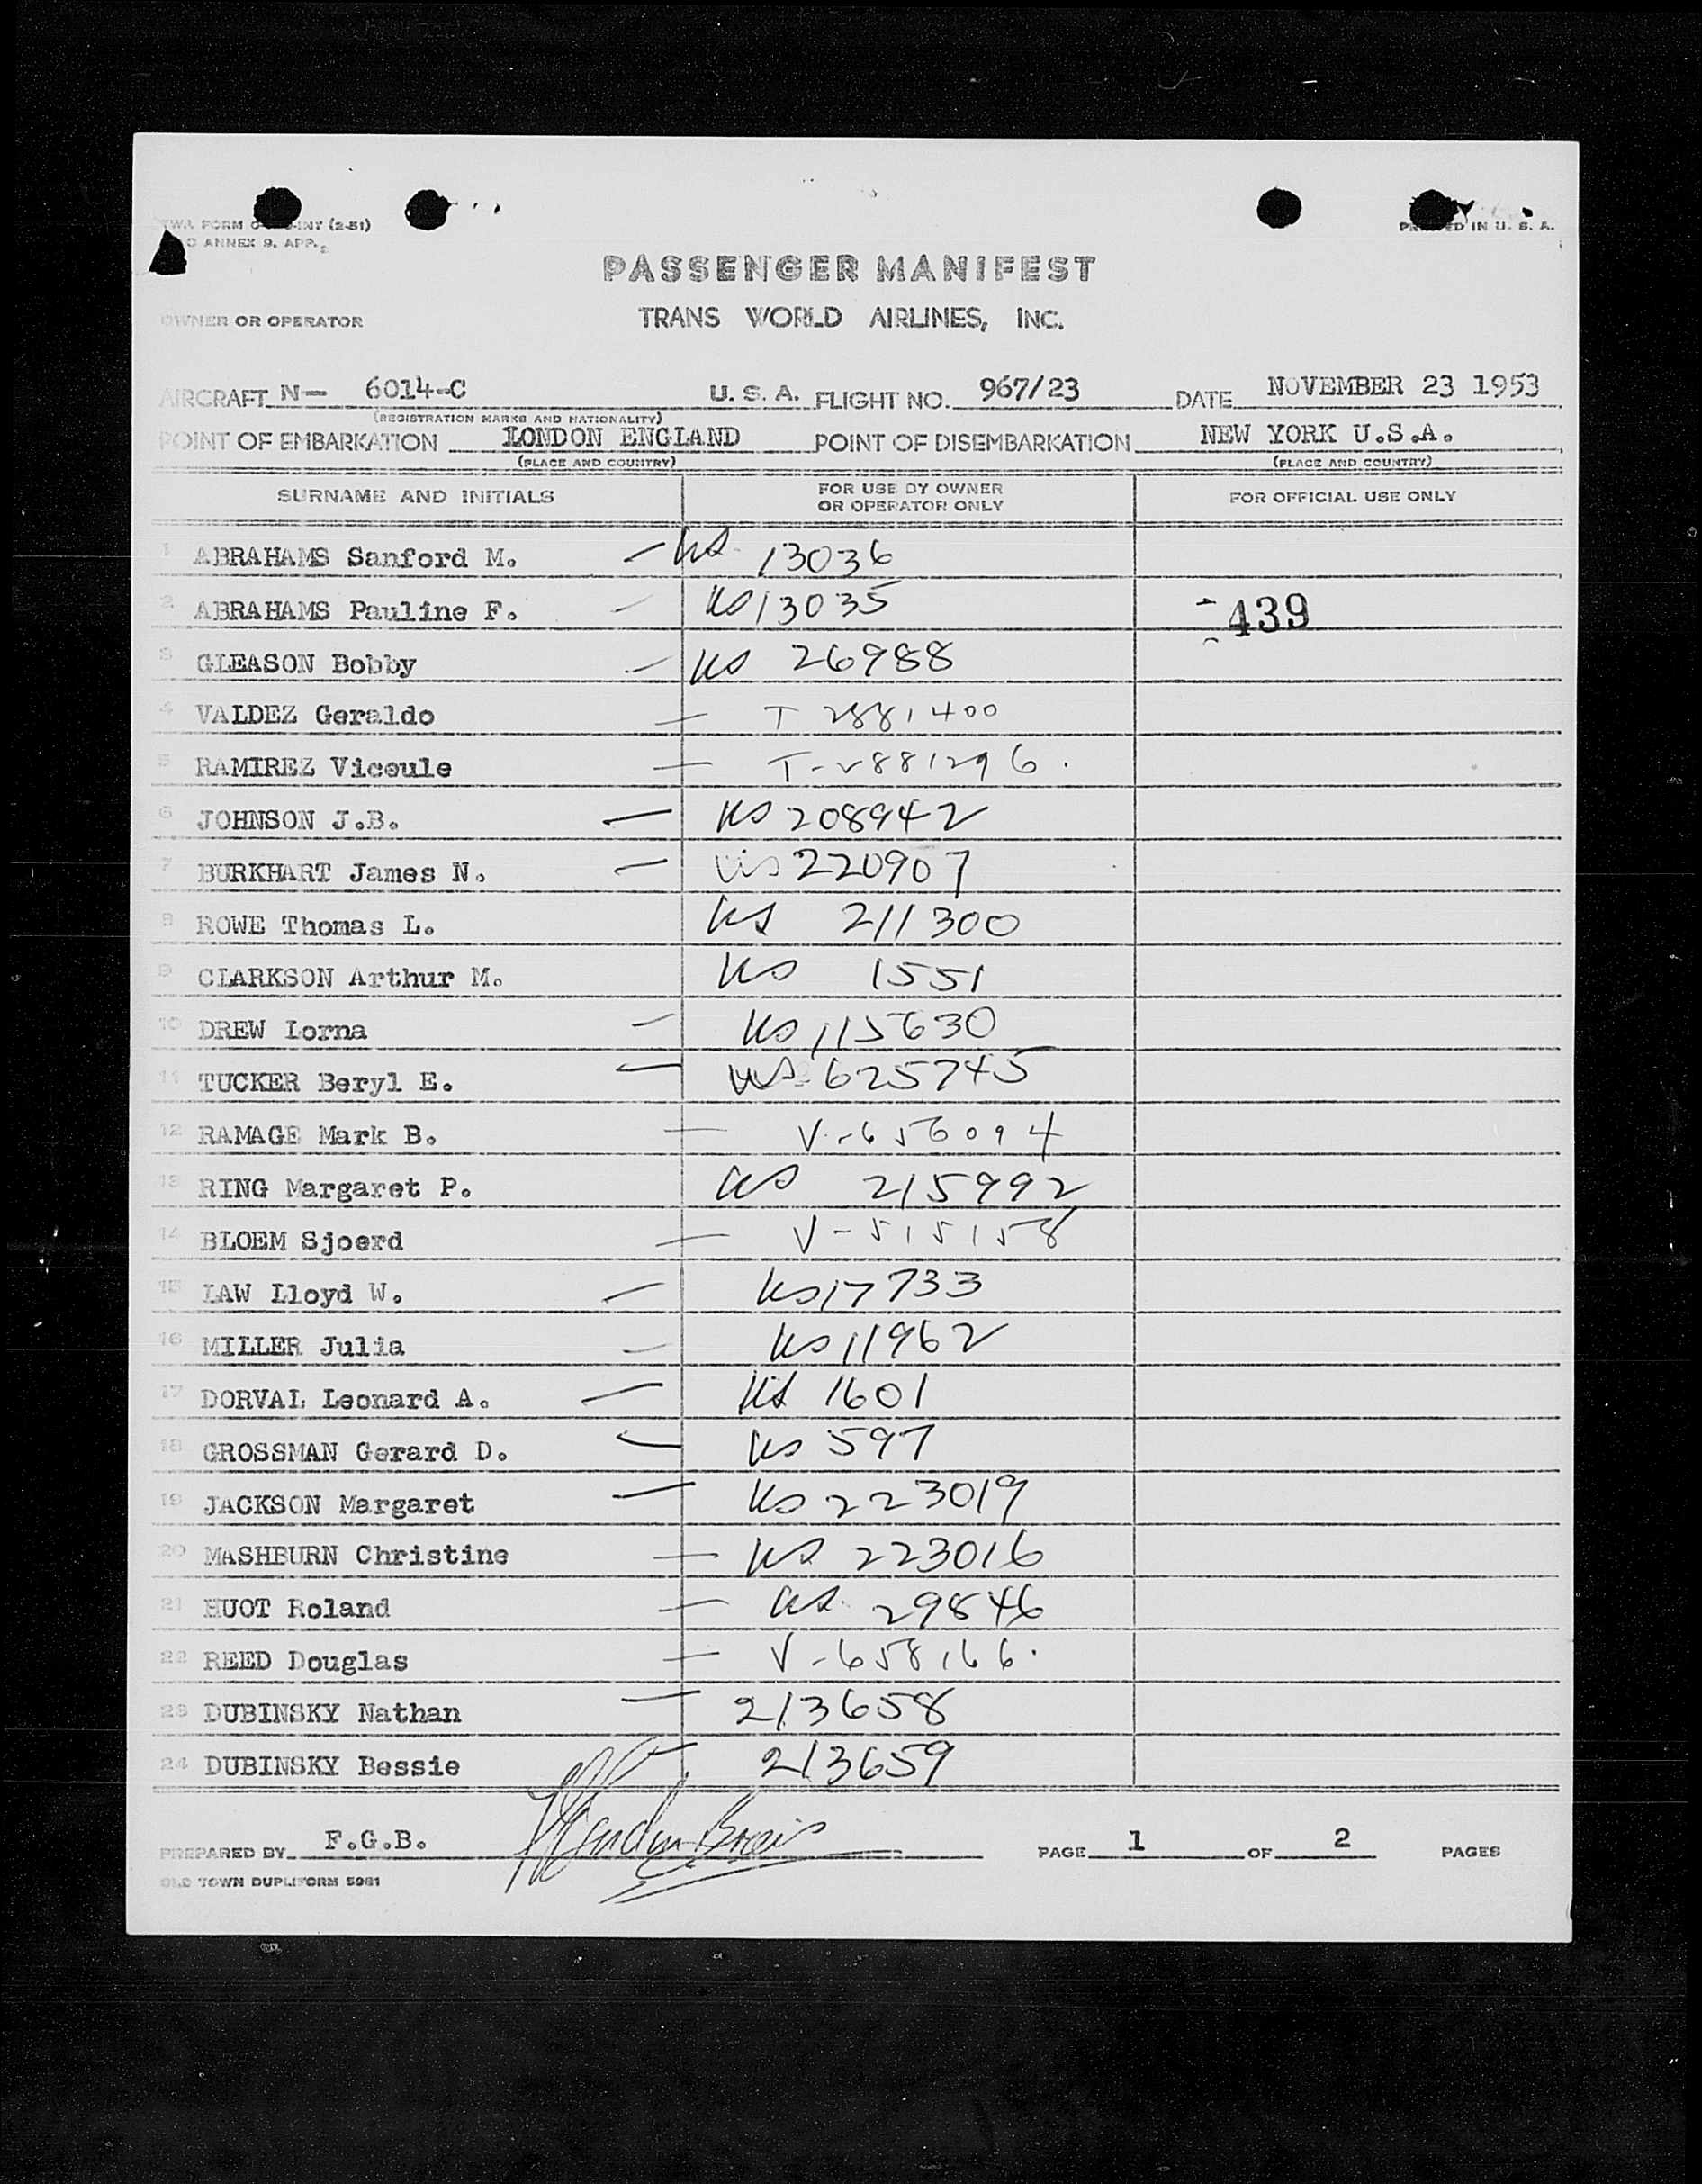 TWA FORM (2-51)
ANNEX 9, APP.
PRINTED IN U. S. A.
PASSENGER MANIFEST
OWNER OR OPERATOR TRANS WORLD AIRLINES, INC.
AIRCRAFT N- 6014-C U. S. A. FLIGHT NO. 967/23 DATE NOVEMBER 23 1953
(REGISTRATION MARKS AND NATIONALITY)
POINT OF EMBARKATION LONDON ENGLAND POINT OF DISEMBARKATION NEW YORK U.S.A.
(PLACE AND COUNTRY) (PLACE AND COUNTRY)
SURNAME AND INITIALS FOR USE BY OWNER OR OPERATOR ONLY FOR OFFICIAL USE ONLY
1 ABRAHAMS Sanford M. — US 13036
2 ABRAHAMS Pauline F. — US 13035 439
3 GLEASON Bobby — US 26988
4 VALDEZ Geraldo — T 2881400
5 RAMIREZ Viceule — T-2881296.
6 JOHNSON J.B. — US 208942
7 BURKHART James N. — US 220907
8 ROWE Thomas L. US 211300
9 CLARKSON Arthur M. US 1551
10 DREW Lorna — US 115630
11 TUCKER Beryl E. — US 625745
12 RAMAGE Mark B. — V-656094
13 RING Margaret P. US 215992
14 BLOEM Sjoerd — V-515158
15 LAW Lloyd W. — US 17733
16 MILLER Julia — US 11962
17 DORVAL Leonard A. — US 1601
18 GROSSMAN Gerard D. — US 597
19 JACKSON Margaret — US 223019
20 MASHBURN Christine — US 223016
21 HUOT Roland — US 29846
22 REED Douglas — V-658166.
23 DUBINSKY Nathan — 213658
24 DUBINSKY Bessie — 213659
PREPARED BY F.G.B. PAGE 1 OF 2 PAGES
OLD TOWN DUPLIFORM 5981